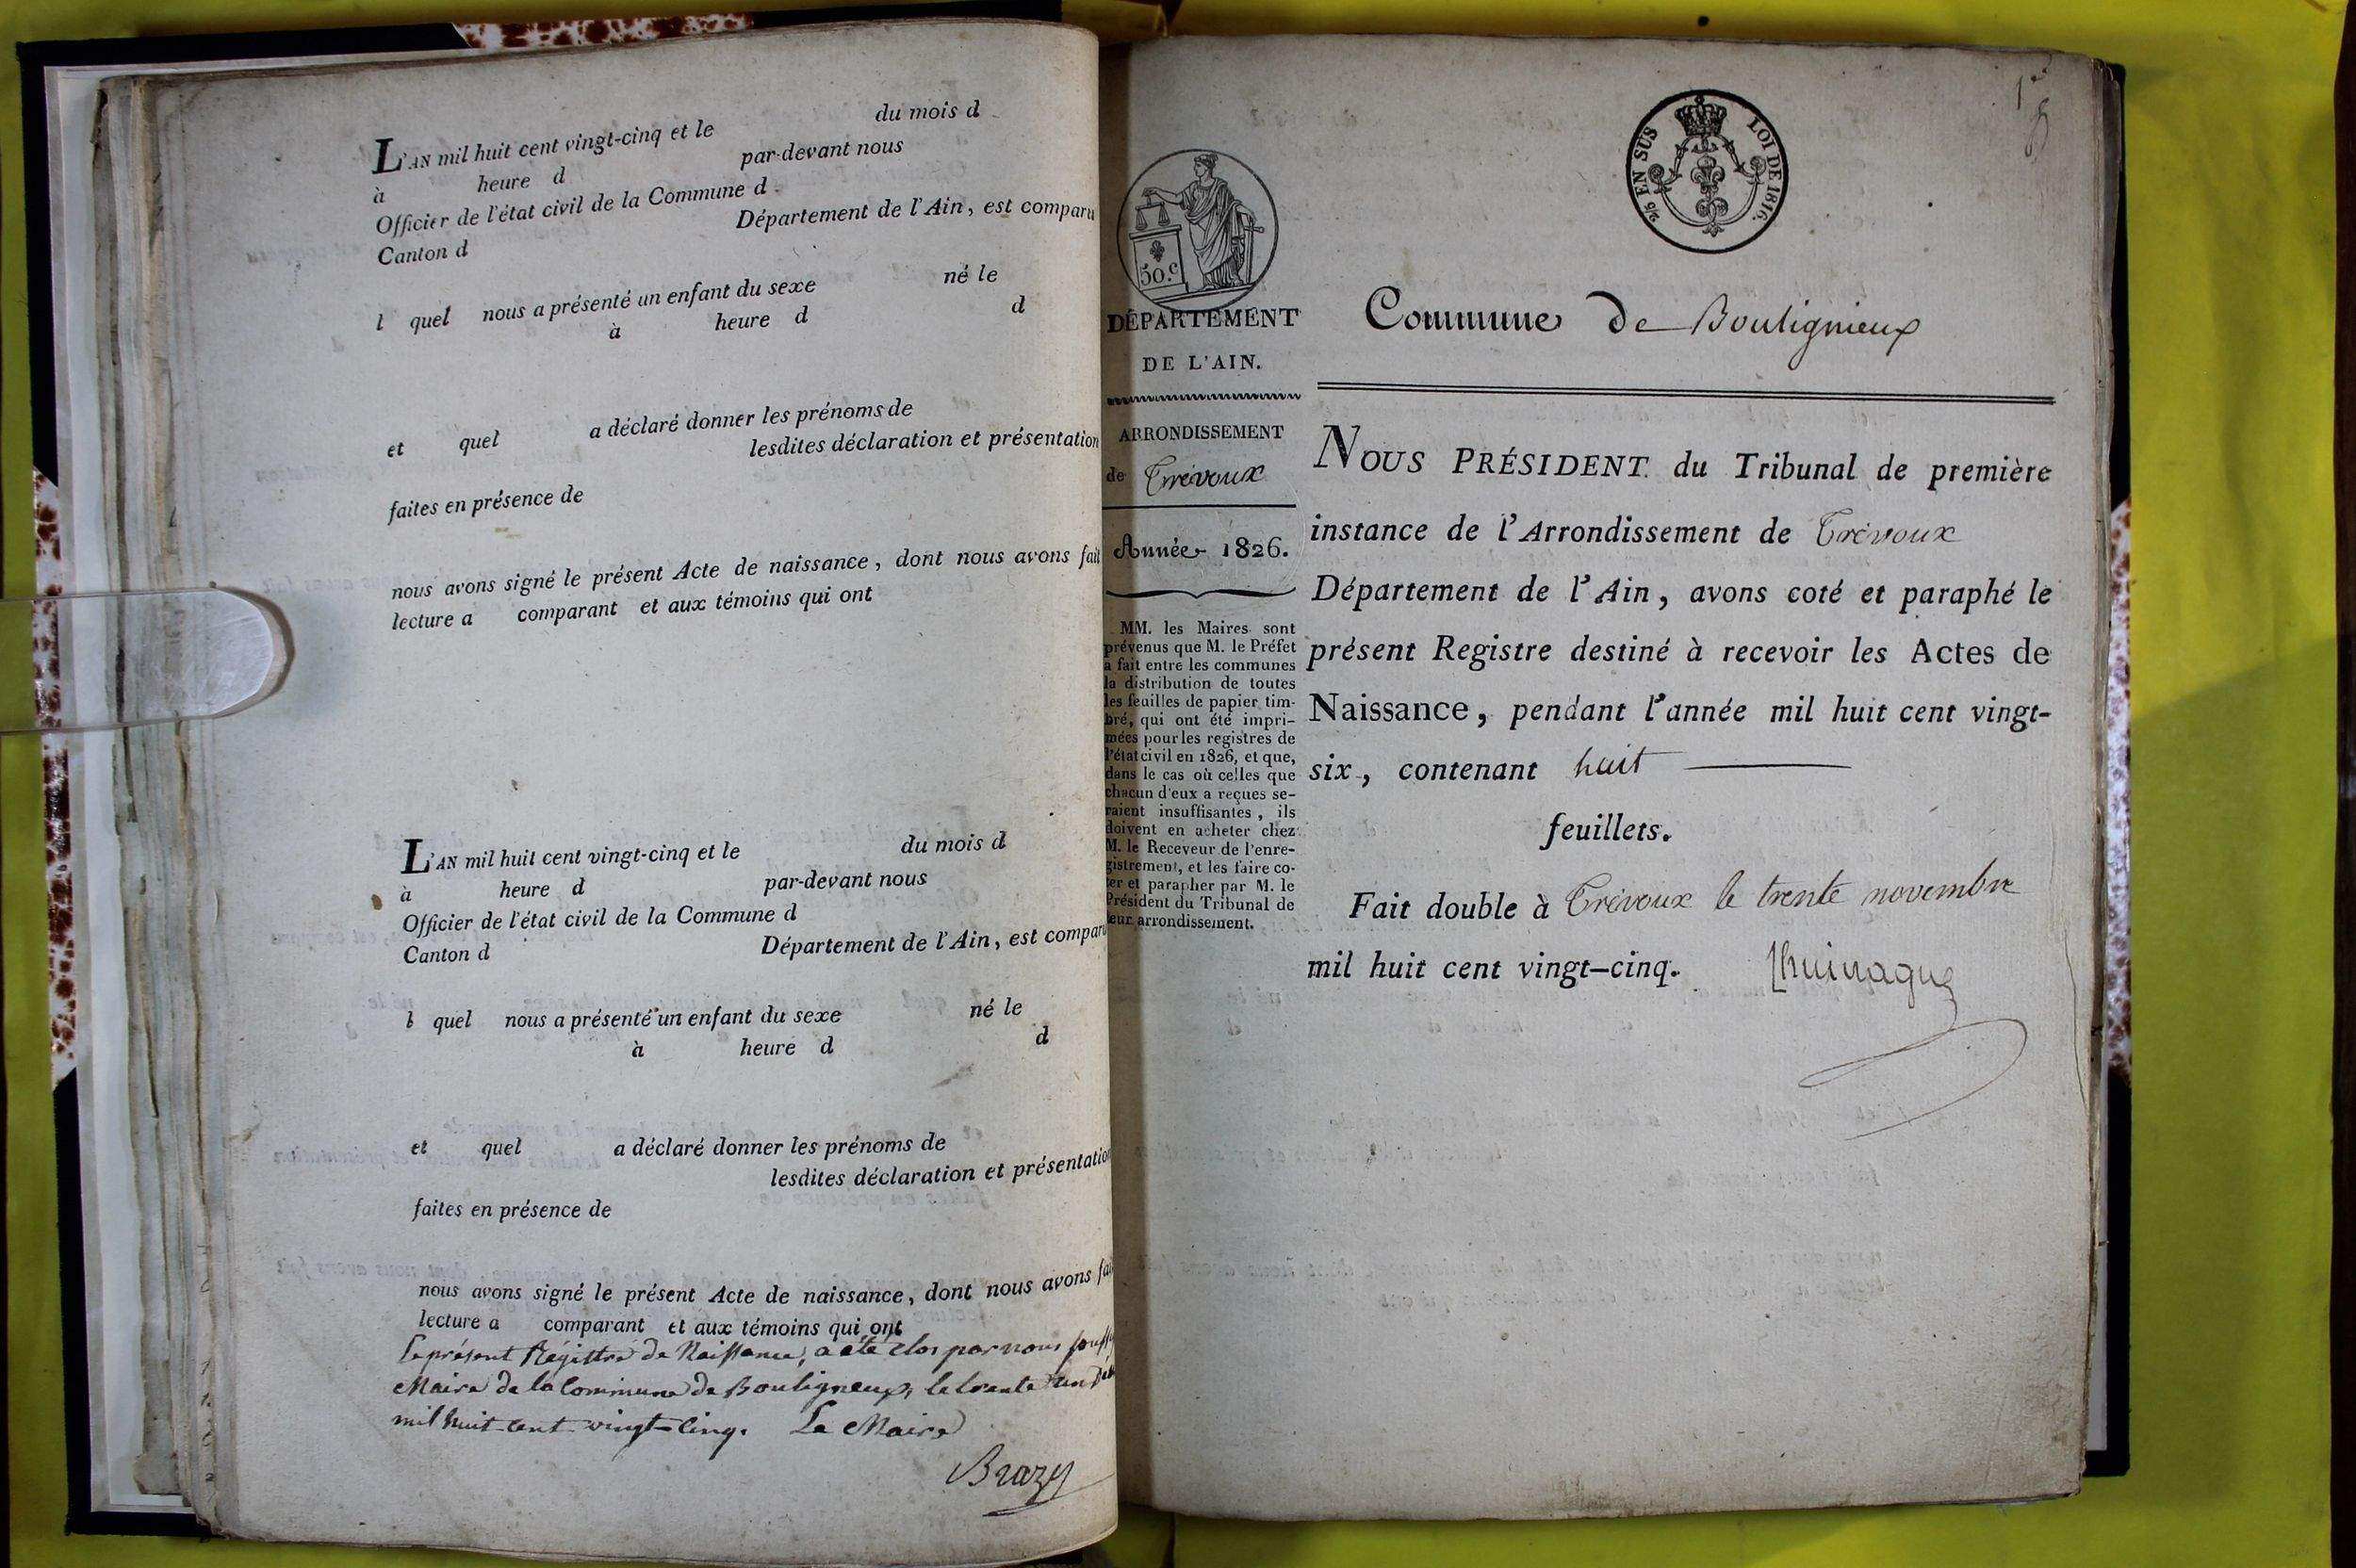 L'AN mil huit cent vingt-cinq et le du mois d
à heure d par-devant nous
Officier de l'état civil de la Commune d
Canton d Département de l'Ain, est comparu
l quel nous a présenté un enfant du sexe né le
à heure d d
et quel a déclaré donner les prénoms de
lesdites déclaration et présentation
faites en présence de
nous avons signé le présent Acte de naissance, dont nous avons fait
lecture a comparant et aux témoins qui ont
L'AN mil huit cent vingt-cinq et le du mois d
à heure d par-devant nous
Officier de l'état civil de la Commune d
Canton d Département de l'Ain, est comparu
l quel nous a présenté un enfant du sexe né le
à heure d d
et quel a déclaré donner les prénoms de
lesdites déclaration et présentation
faites en présence de
nous avons signé le présent Acte de naissance, dont nous avons fai
lecture a comparant et aux témoins qui ont
Le présent Régistre de Naissance, a été clos par nous
Maire de la Commune de Bouligneux, le trente un
mil huit cent vingt-cinq. Le Maire
Brazy
1er
8
2/5 EN SUS LOI DE 1816.
50.c
DÉPARTEMENT
DE L'AIN.
ARRONDISSEMENT
de Trévoux
Année 1826.
MM. les Maires sont
prévenus que M. le Préfet
a fait entre les communes
la distribution de toutes
les feuilles de papier tim-
bré, qui ont été impri-
mées pour les registres de
l'état civil en 1826, et que,
dans le cas où celles que
chacun d'eux a reçues se-
raient insuffisantes, ils
doivent en acheter chez
M. le Receveur de l'enre-
gistrement, et les faire co-
ter et parapher par M. le
Président du Tribunal de
leur arrondissement.
Commune de Boulignieux
NOUS PRÉSIDENT du Tribunal de première
instance de l'Arrondissement de Trévoux
Département de l'Ain, avons coté et paraphé le
présent Registre destiné à recevoir les Actes de
Naissance, pendant l'année mil huit cent vingt-
six, contenant huit
feuillets.
Fait double à Trévoux le trente novembre
mil huit cent vingt-cinq.